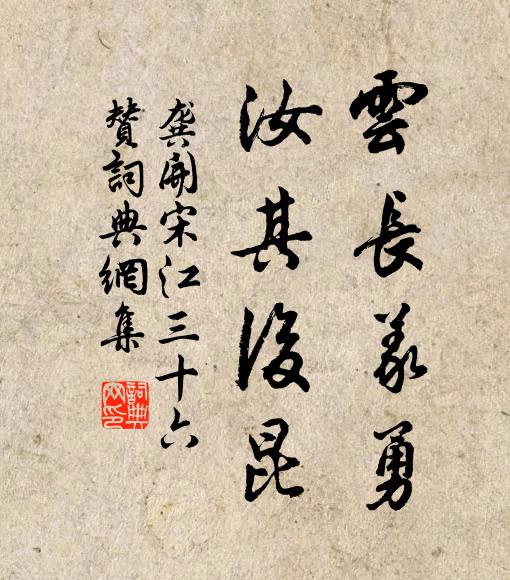 雲長義勇
汝其後昆
龔開宋江三十六
贊詞典網集
詞典
网印